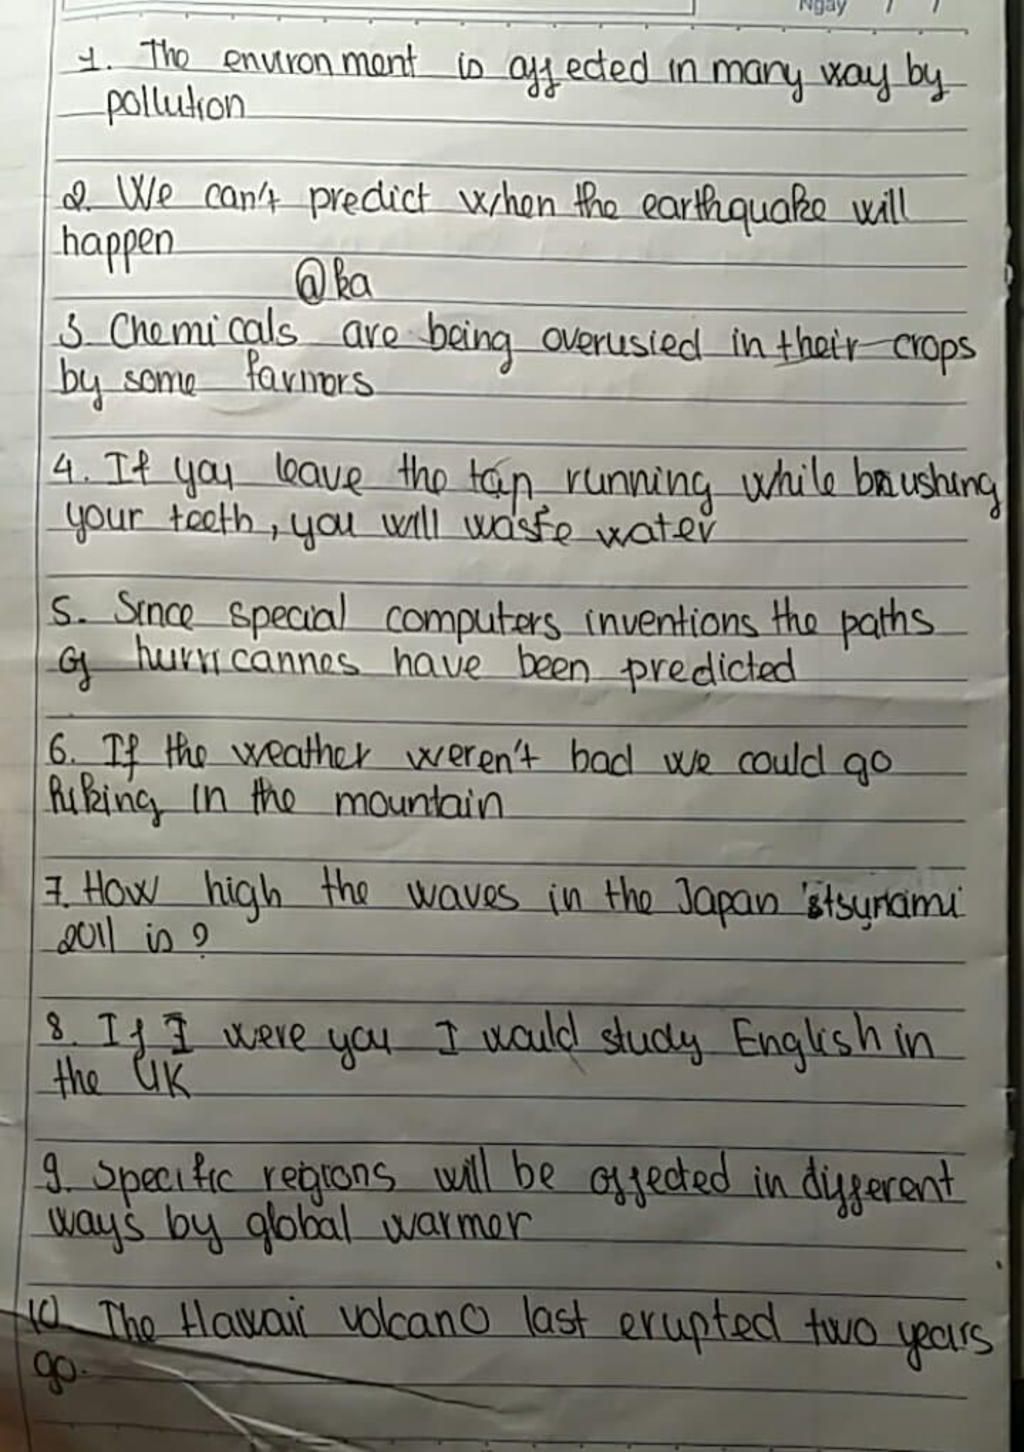 Ngày / /
1. The environment is affected in many way by
pollution
2. We can't predict when the earthquake will
happen
@ka
3. Chemicals are being overusied in their crops
by some farmors
4. If you leave the tap running while brushing
your teeth, you will waste water
5. Since special computers inventions the paths
of hurricannes have been predicted
6. If the weather weren't bad we could go
hiking in the mountain
7. How high the waves in the Japan tsunami
2011 is?
8. If I were you I would study English in
the UK
9. Specific regions will be affected in different
ways by global warmer
10. The Hawaii volcano last erupted two years
go.